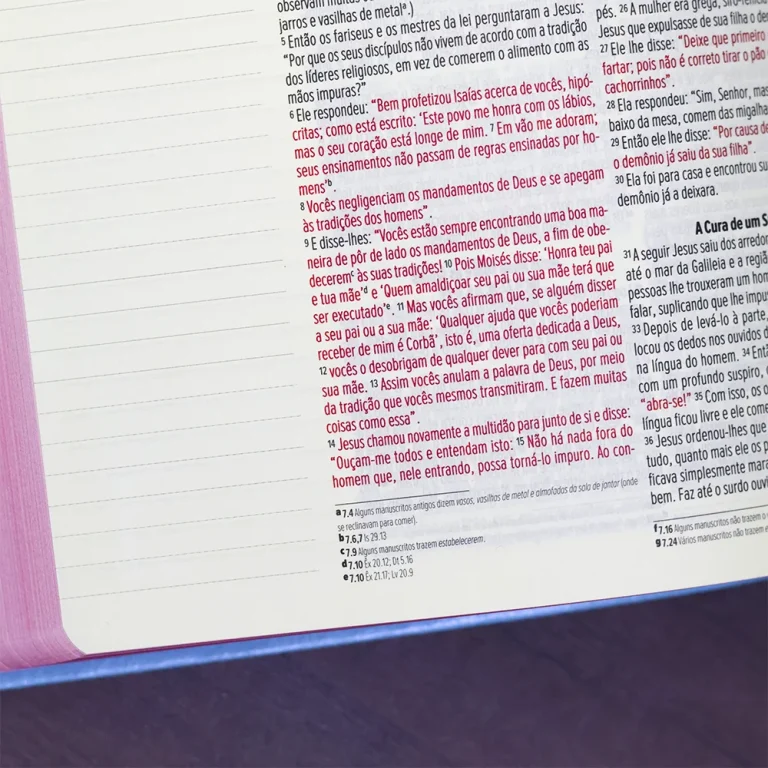 observam muitas
jarros e vasilhas de metalª.)
5 Então os fariseus e os mestres da lei perguntaram a Jesus:
“Por que os seus discípulos não vivem de acordo com a tradição
dos líderes religiosos, em vez de comerem o alimento com as
mãos impuras?”
6 Ele respondeu: “Bem profetizou Isaías acerca de vocês, hipó-
critas; como está escrito: ‘Este povo me honra com os lábios,
mas o seu coração está longe de mim. 7 Em vão me adoram;
seus ensinamentos não passam de regras ensinadas por ho-
mens’ᵇ.
8 Vocês negligenciam os mandamentos de Deus e se apegam
às tradições dos homens”.
9 E disse-lhes: “Vocês estão sempre encontrando uma boa ma-
neira de pôr de lado os mandamentos de Deus, a fim de obe-
deceremᶜ às suas tradições! 10 Pois Moisés disse: ‘Honra teu pai
e tua mãe’ᵈ e ‘Quem amaldiçoar seu pai ou sua mãe terá que
ser executado’ᵉ. 11 Mas vocês afirmam que, se alguém disser
a seu pai ou a sua mãe: ‘Qualquer ajuda que vocês poderiam
receber de mim é Corbã’, isto é, uma oferta dedicada a Deus,
12 vocês o desobrigam de qualquer dever para com seu pai ou
sua mãe. 13 Assim vocês anulam a palavra de Deus, por meio
da tradição que vocês mesmos transmitiram. E fazem muitas
coisas como essa”.
14 Jesus chamou novamente a multidão para junto de si e disse:
“Ouçam-me todos e entendam isto: 15 Não há nada fora do
homem que, nele entrando, possa torná-lo impuro. Ao con-
a 7.4 Alguns manuscritos antigos dizem vasos, vasilhas de metal e almofadas da sala de jantar (onde
se reclinavam para comer).
b 7.6,7 Is 29.13
c 7.9 Alguns manuscritos trazem estabelecerem.
d 7.10 Êx 20.12; Dt 5.16
e 7.10 Êx 21.17; Lv 20.9
pés. 26 A mulher era grega,
Jesus que expulsasse de sua filha o
27 Ele lhe disse: “Deixe que primeiro
fartar; pois não é correto tirar o pão
cachorrinhos”.
28 Ela respondeu: “Sim, Senhor, mas
baixo da mesa, comem das
29 Então ele lhe disse: “Por causa
o demônio já saiu da sua filha”.
30 Ela foi para casa e encontrou
demônio já a deixara.
A Cura de um
31 A seguir Jesus saiu dos
até o mar da Galileia e a
pessoas lhe trouxeram um
falar, suplicando que lhe
33 Depois de levá-lo à parte,
locou os dedos nos ouvidos
na língua do homem. 34
com um profundo suspiro,
“abra-se!” 35 Com isso, os
língua ficou livre e ele
36 Jesus ordenou-lhes que
tudo, quanto mais ele os
ficava simplesmente
bem. Faz até o surdo
f 7.16 Alguns manuscritos não trazem o
g 7.24 Vários manuscritos não trazem